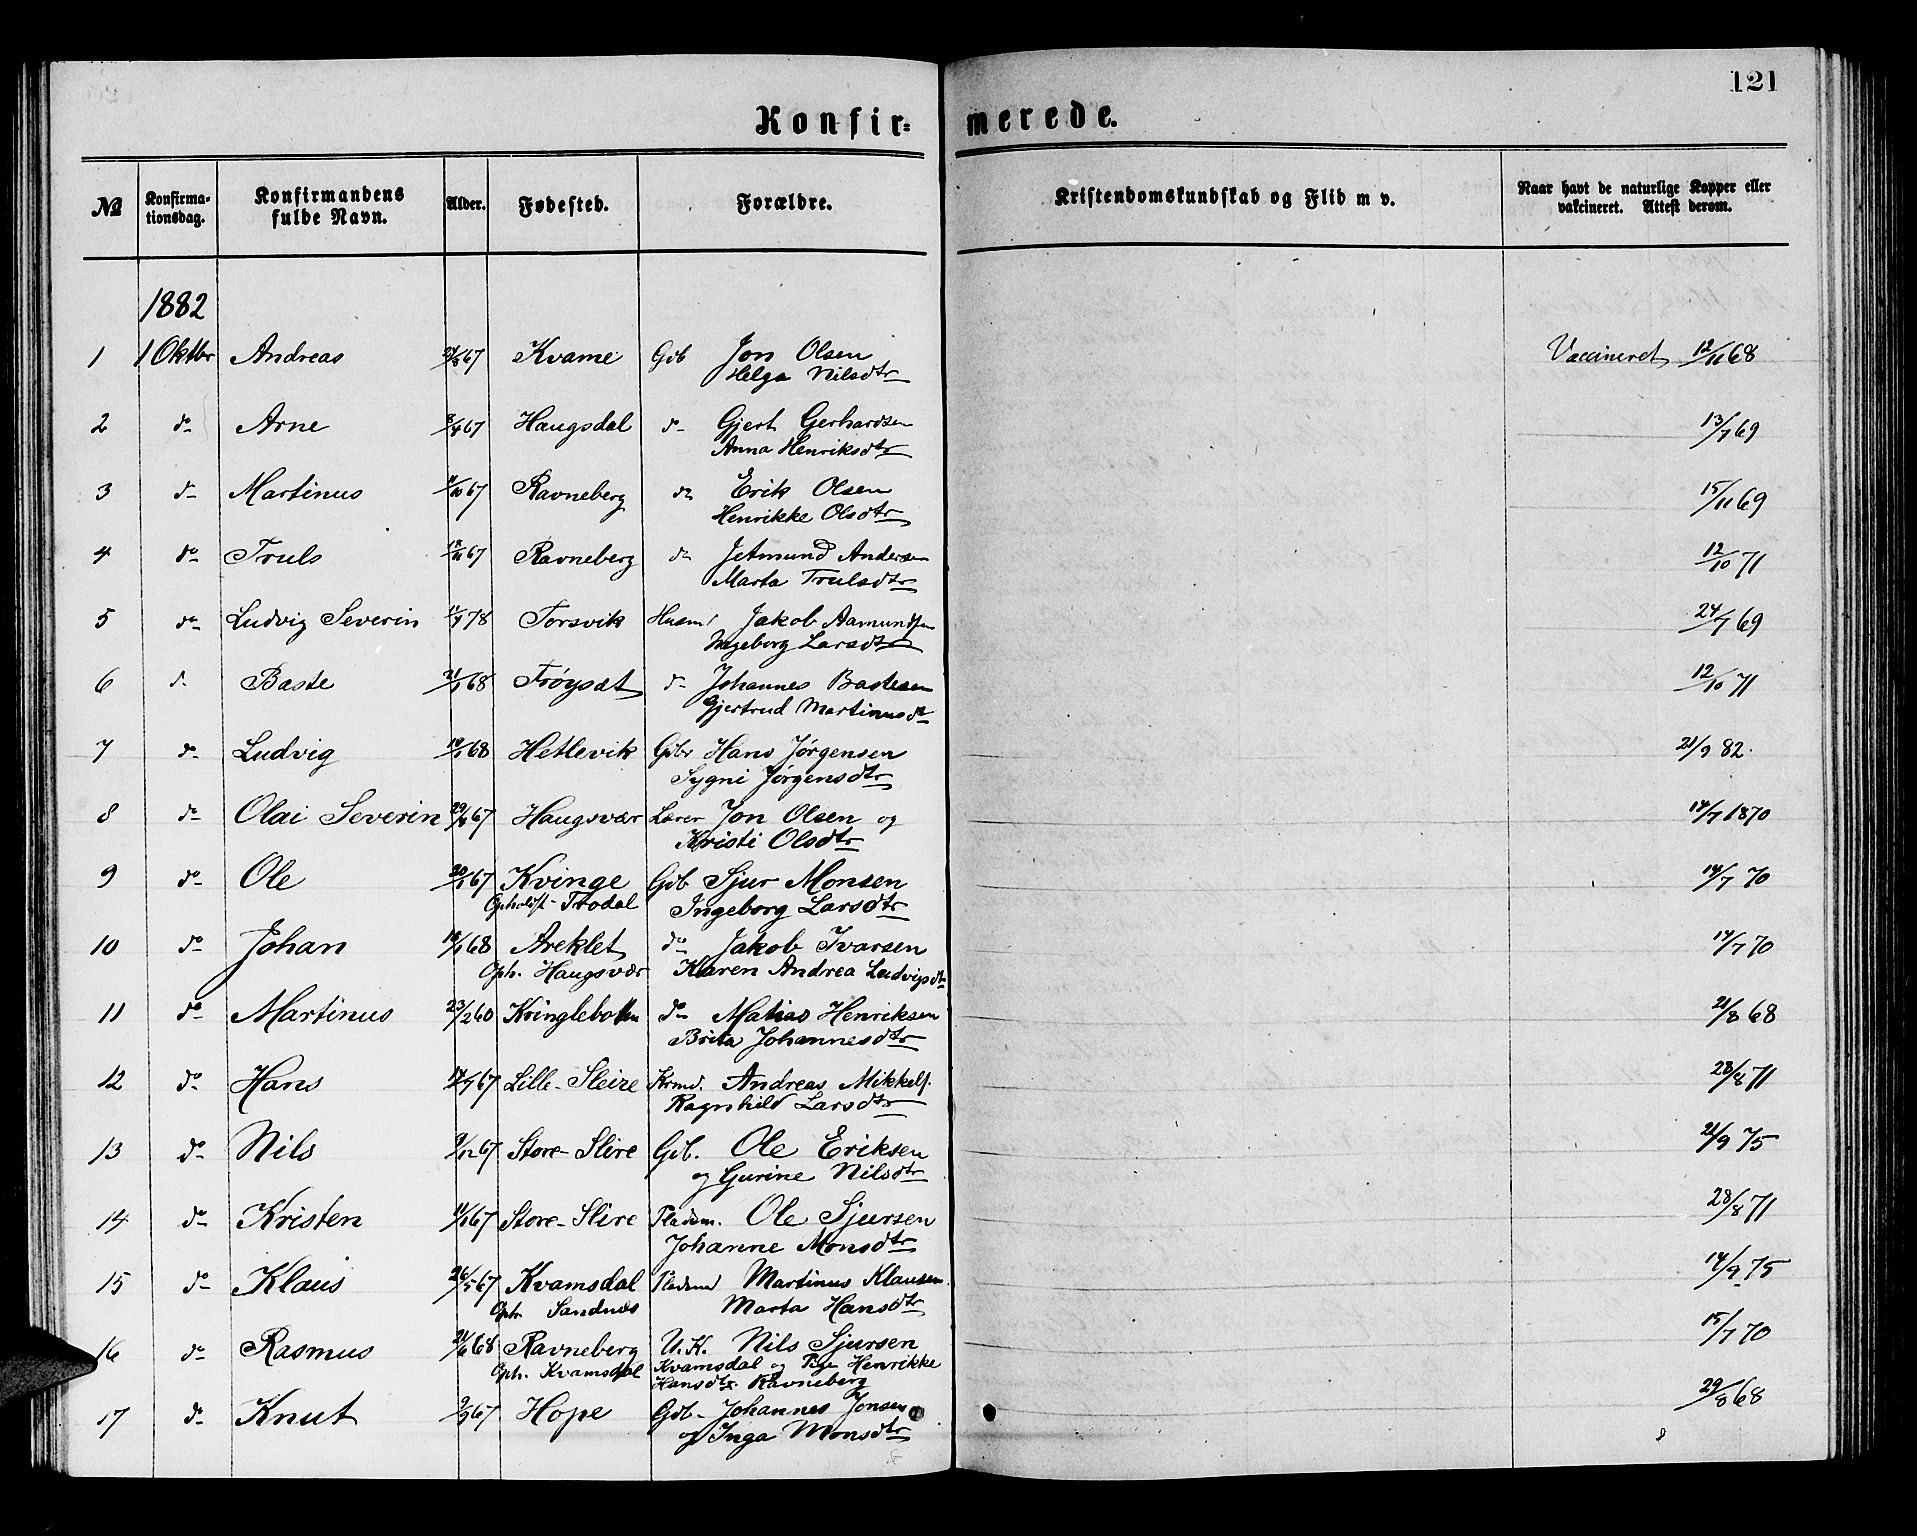 121
Konfir= merede.
№ Konfirma-tionsdag. Konfirmandens fulde Navn. Alder. Fødested. Forældre. Kristendomskundskab og Flid m v. Naar havt de naturlige Kopper eller vakcineret. Attest derom.
1882
1 1 Oktbr Andreas 67 Kvame Gdb Jon Olsen Vaccineret 12/11 68
Helga Nilsdtr
2 do Arne 67 Haugsdal do Gjert Gerhardsen 13/7 69
Anna Henriksdtr
3 do Martinus /10 67 Ravneberg do Erik Olsen 15/11 69
Henrikke Olsdtr
4 do Truls 67 Ravneberg do Jetmund Andersen 12/10 71
Marta Trulsdtr
5 do Ludvig Severin 78 Torsvik Husm Jakob Aamundsen 24/7 69
Ingeborg Larsdtr
6 do Baste 68 Frøysæt do Johannes Bastesen 12/10 71
Gjertrud Martinusdtr
7 do Ludvig 68 Hetlevik Gdbr Hans Jørgensen 21/9 82.
Sygni Jørgensdtr
8 do Olai Severin 67 Haugsvær Lærer Jon Olsen og 14/7 1870
Kristi Olsdtr
9 do Ole 67 Kvinge Gdb Sjur Monsen 14/7 70
Opholdst. Ingeborg Larsdtr
10 do Johan 68 Areklet do Jakob Ivarsen 14/7 70
Oph. Haugsvær Karen Andrea Ludvigsdtr
11 do Martinus 23/2 60 Kvinglebotten do Matias Henriksen 21/8 68
Brita Johannesdtr
12 do Hans 67 Lille-Sleire Krmd. Andreas Mikkels. 28/8 71
Ragnhild Larsdtr
13 do Nils 9/12 67 Store-Slire Gdb. Ole Eriksen 21/9 75
og Gurine Nilsdtr
14 do Kristen 67 Store-Slire Pladsm. Ole Sjursen 28/8 71
Johanne Monsdtr
15 do Klaus 26/5 67 Kvamsdal Pladsmd Martinus Klausen. 14/9 75
Oph Sandnes Marta Hansdtr
16 do Rasmus 68 Ravneberg U.K. Nils Sjursen 15/7 70
Oph. Kvamsdal Kvamsdal og Pige Henrikke
Hansdtr. Ravneberg
17 do Knut 67 Hope Gdb. Johannes Jonsen 29/8 68
og Inga Monsdtr